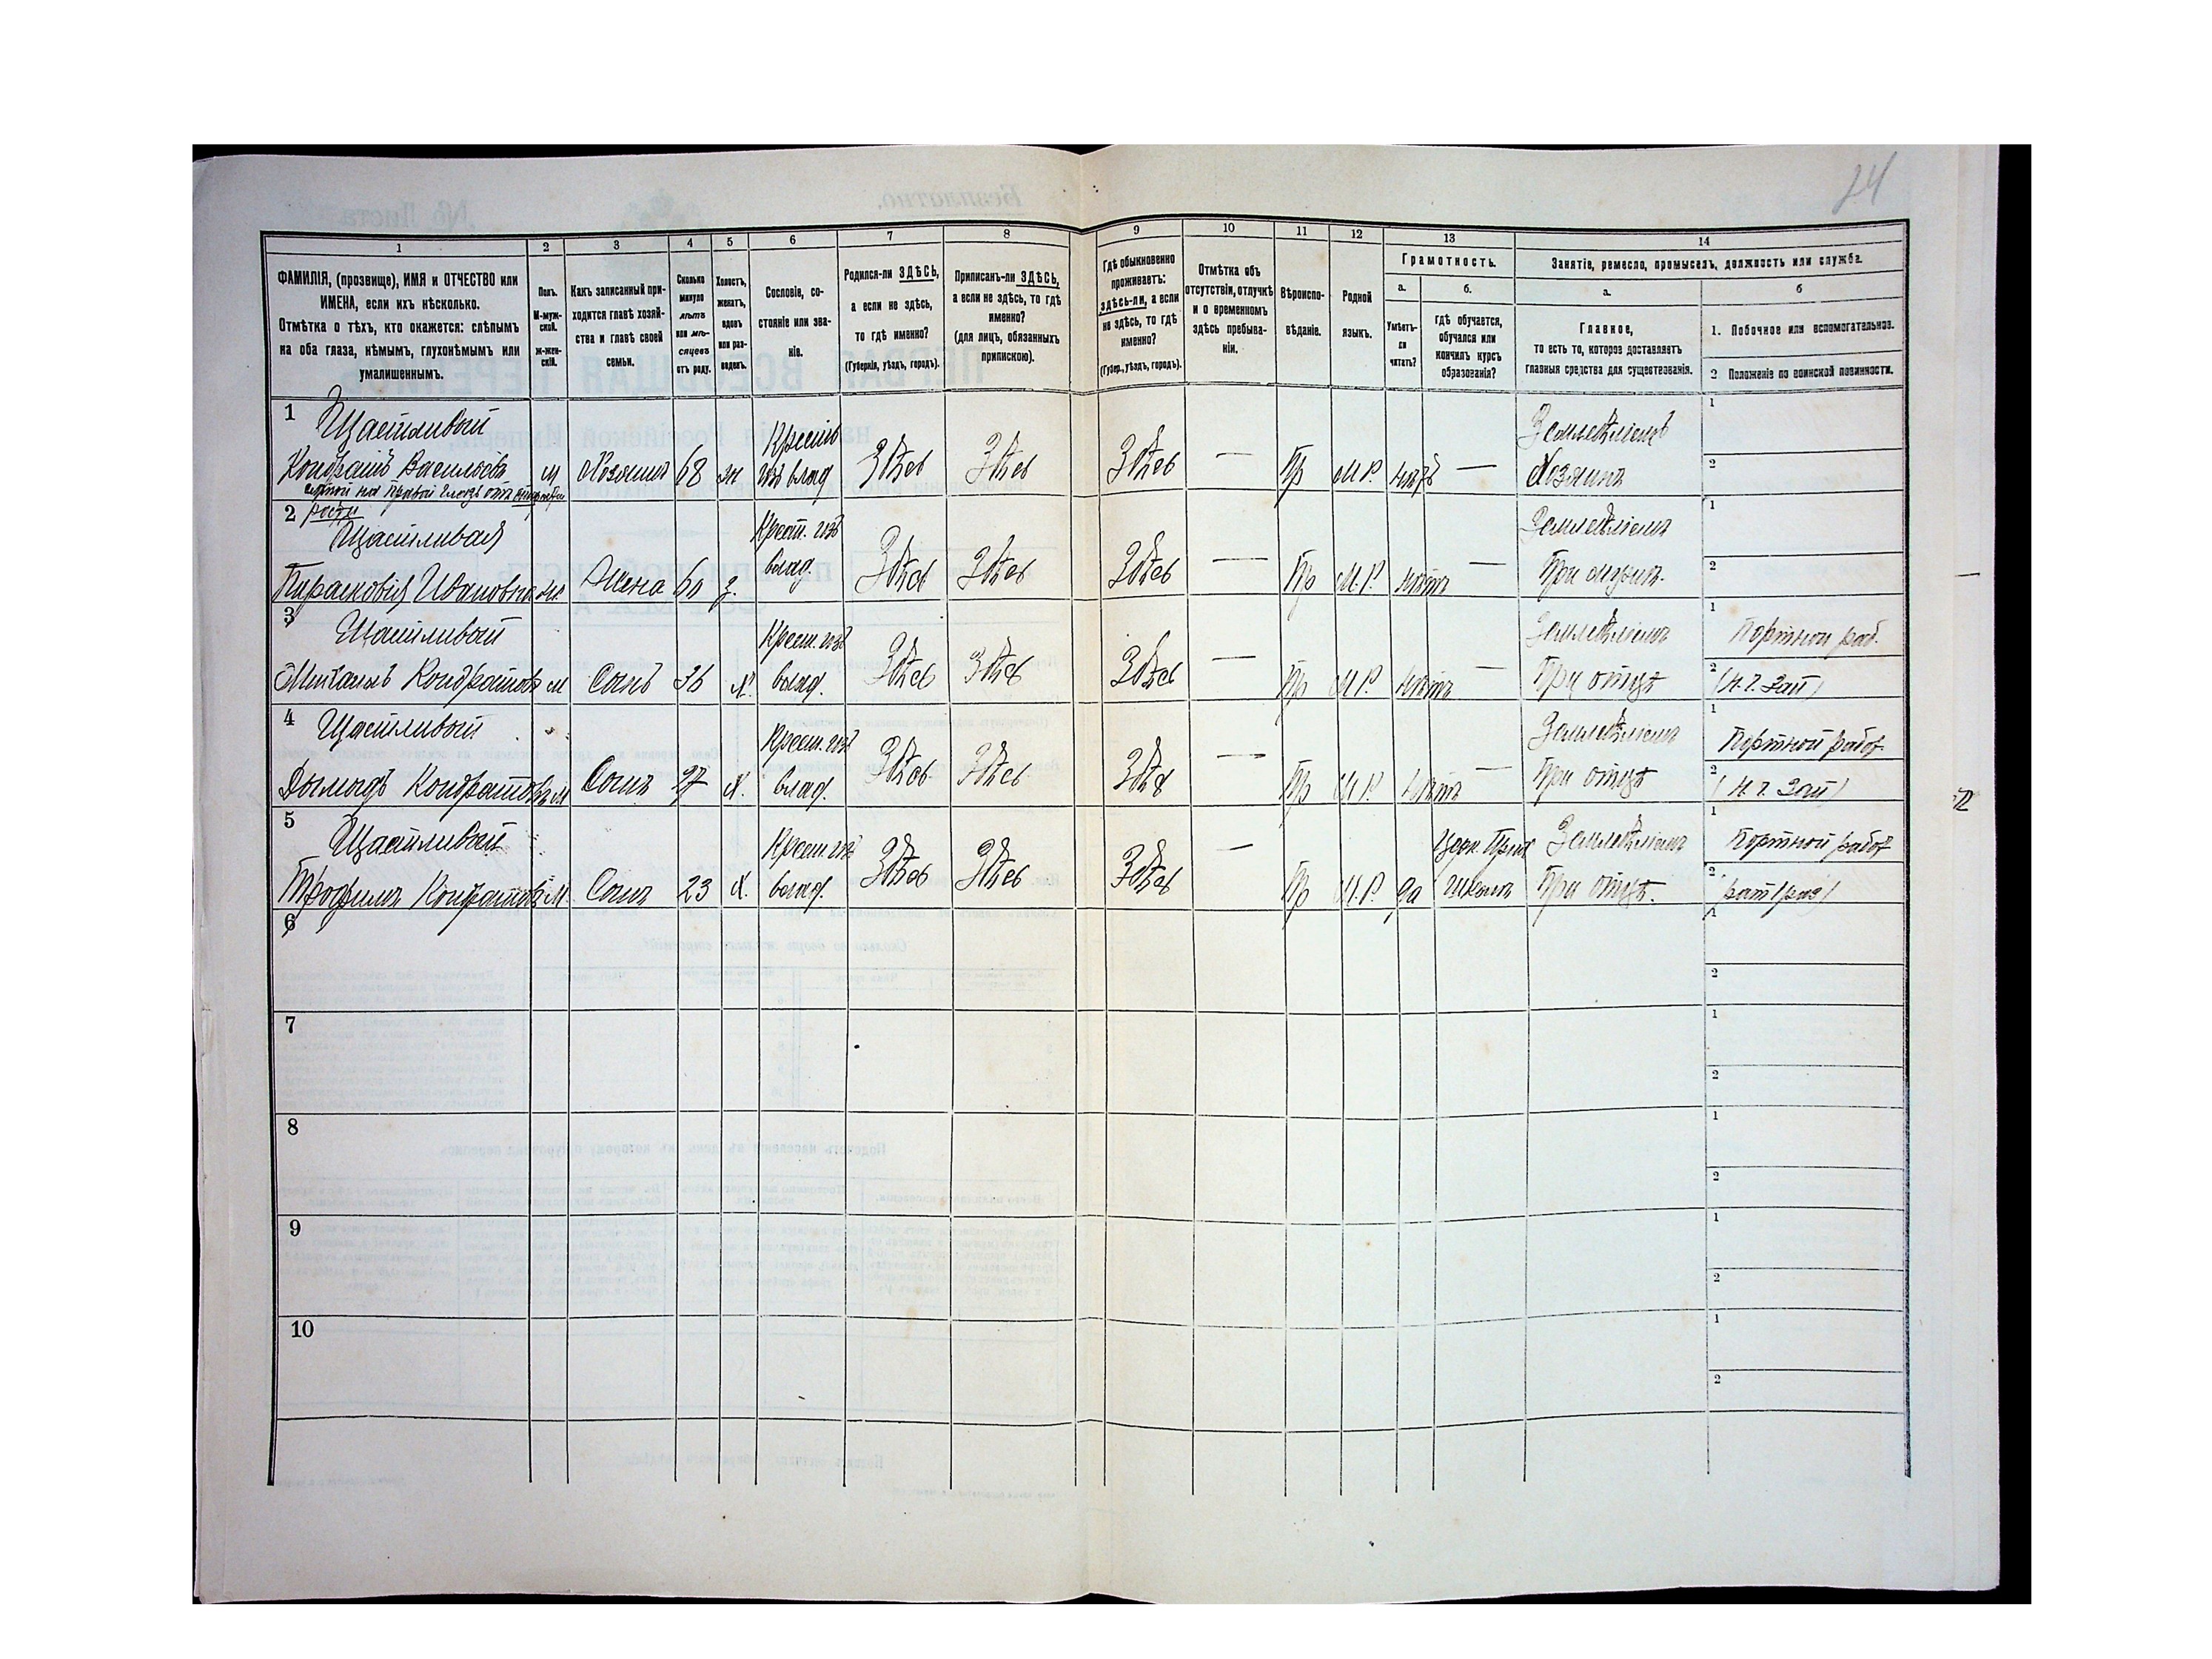 24
1 2 3 4 5 6 7 8 9 10 11 12 13 14
ФАМИЛІЯ, (прозвище), ИМЯ и ОТЧЕСТВО или
ИМЕНА, если ихъ нѣсколько.
Отмѣтка о тѣхъ, кто окажется: слѣпымъ
на оба глаза, нѣмымъ, глухонѣмымъ или
умалишеннымъ.
Полъ.
М-муж-
ской.
ж-жен-
скій.
Какъ записанный при-
ходится главѣ хозяй-
ства и главѣ своей
семьи.
Сколько
минуло
лѣтъ
или мѣ-
сяцевъ
отъ роду.
Холостъ,
женатъ,
вдовъ
или раз-
веденъ.
Сословіе, со-
стояніе или зва-
ніе.
Родился-ли ЗДѢСЬ,
а если не здѣсь,
то гдѣ именно?
(Губернія, уѣздъ, городъ).
Приписанъ-ли ЗДѢСЬ,
а если не здѣсь, то гдѣ
именно?
(для лицъ, обязанныхъ
припискою).
Гдѣ обыкновенно
проживаетъ:
здѣсь-ли, а если
не здѣсь, то гдѣ
именно?
(Губер., уѣздъ, городъ).
Отмѣтка объ
отсутствіи, отлучкѣ
и о временномъ
здѣсь пребыва-
ніи.
Вѣроиспо-
вѣданіе.
Родной
языкъ.
Грамотность.
а.
Умѣетъ-
ли
читать?
б.
гдѣ обучается,
обучался или
кончилъ курсъ
образованія?
Занятіе, ремесло, промыселъ, должность или служба.
а.
Главное,
то есть то, которое доставляетъ
главныя средства для существованія.
б
1. Побочное или вспомогательное.
2 Положеніе по воинской повинности.
1 Щастливый Крестьян Земледѣліемъ 1
Кондратъ Васильевъ м Хозяинъ 68 ж гос влад Здѣсь Здѣсь Здѣсь — Пр М.Р. нѣтъ — Хозяинъ 2
слѣпой на правый глазъ отъ
2 Щастливая Крест. гос Земледѣліемъ 1
Парасковія Ивановна ж Жена 60 з. влад. Здѣсь Здѣсь Здѣсь — Пр М.Р. нѣтъ — При мужѣ. 2
3 Щастливый Крест. гос Земледѣліемъ 1 Портной раб.
Кондратовъ м Сынъ 36 Х. влад. Здѣсь Здѣсь Здѣсь — Пр М.Р. нѣтъ — При отцѣ 2 (Н. Ч. Зап)
4 Щастливый Крест. гос Земледѣліемъ 1 Портной работ.
Кондратовъ м Сынъ 27 Х. влад. Здѣсь Здѣсь Здѣсь — Пр М.Р. нѣтъ — При отцѣ 2 (Н. Ч. Зап)
5 Щастливый Крест. гос Церк. Прих Земледѣліемъ 1 Портной работ
Трофимъ Кондратовъ М. Сынъ 23 Х. влад. Здѣсь Здѣсь Здѣсь — Пр М.Р. да школа При отцѣ. 2
6 1
2
7 1
2
8 1
2
9 1
2
10 1
2